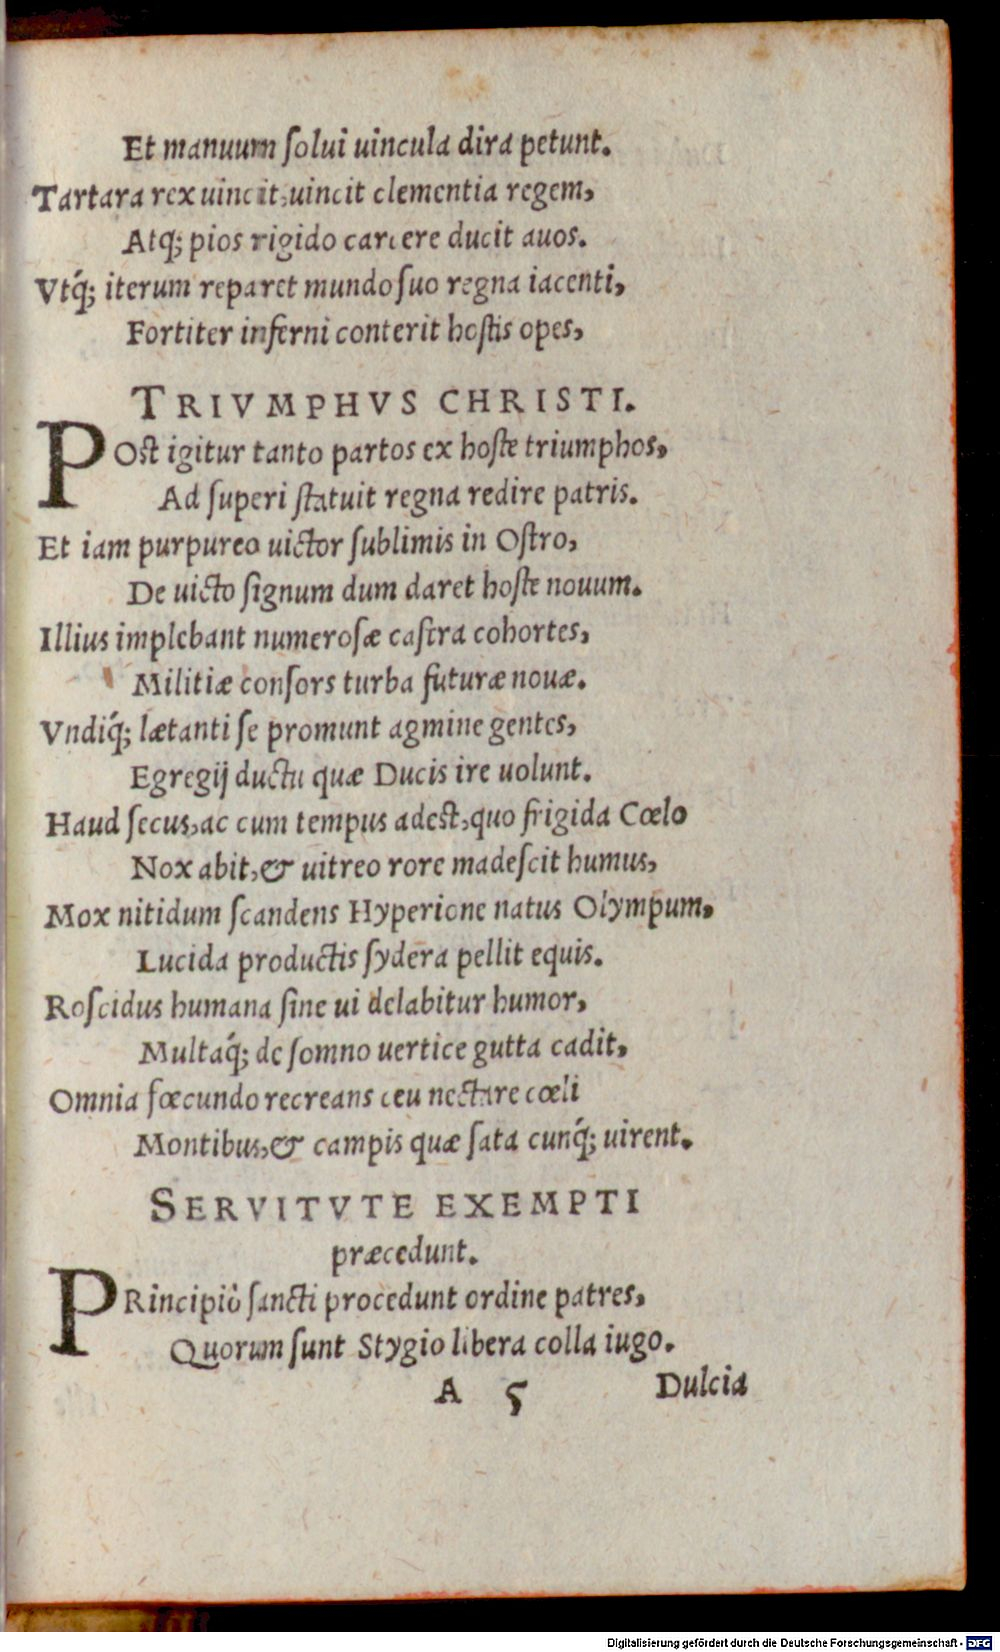 Et manuum ſolui uincula dira petunt.
Tartara rex uincit, uincit clementia regem,
Atq́; pios rigido carcere ducit auos.
Vtq́; iterum reparet mundo ſuo regna iacenti,
Fortiter inferni conterit hoſtis opes,
TRIVMPHVS CHRISTI.
POst igitur tanto partos ex hoſte triumphos,
Ad ſuperi ſtatuit regna redire patris.
Et iam purpureo uictor ſublimis in Oſtro,
De uicto ſignum dum daret hoſte nouum.
Illius implebant numeroſæ caſtra cohortes,
Militiæ conſors turba futuræ nouæ.
Vndiq́; lætanti ſe promunt agmine gentes,
Egregij ductu quæ Ducis ire uolunt.
Haud ſecus, ac cum tempus adest, quo frigida Cœlo
Nox abit, & uitreo rore madeſcit humus,
Mox nitidum ſcandens Hyperione natus Olympum,
Lucida productis ſydera pellit equis.
Roſcidus humana ſine ui delabitur humor,
Multaq́; de ſomno uertice gutta cadit,
Omnia fœcundo recreans ceu nectare cœli
Montibus, & campis quæ ſata cunq́; uirent.
SERVITVTE EXEMPTI
præcedunt.
PRincipiò ſancti procedunt ordine patres,
Quorum ſunt Stygio libera colla iugo.
A 5 Dulcia
Digitalisierung gefördert durch die Deutsche Forschungsgemeinschaft - DFG